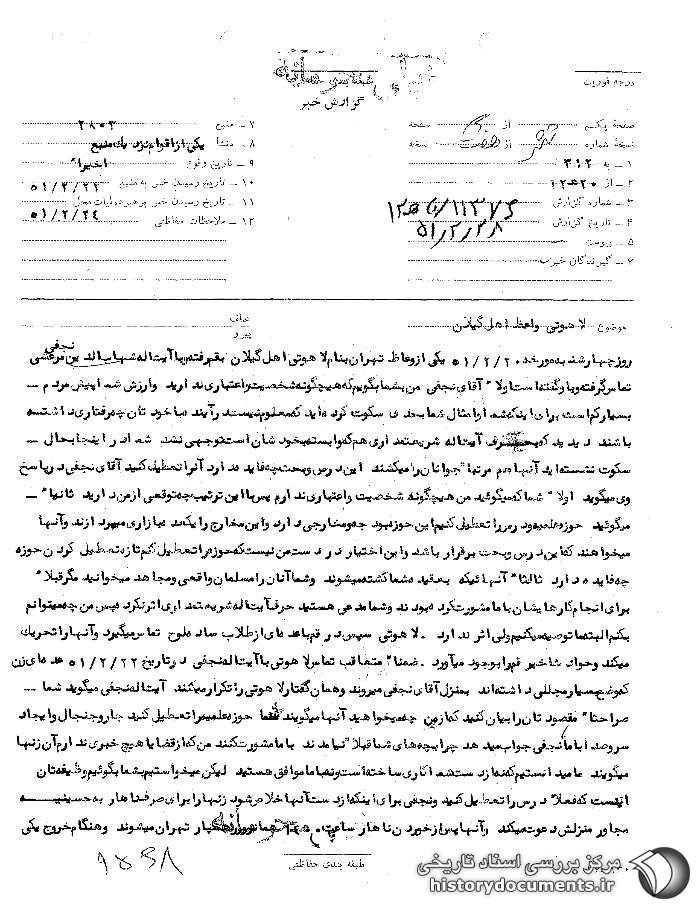 خیلی محرمانه
گزارش خبر
درجه فوریت
صفحه یکم از صفحه
نسخه شماره از نسخه
۱ ـ به ۳۱۲
۲ ـ از ۱۲ ه ۲۰
۳ ـ شماره گزارش
۴ ـ تاریخ گزارش ۵۱/۲/۲۸
۵ ـ پیوست
۶ ـ گیرندگان خبر
۷ ـ منبع ۲۸۰۳
۸ ـ منشأ یکی از اقوام نزدیک منبع
۹ ـ تاریخ وقوع اخیرا"
۱۰ ـ تاریخ رسیدن خبر به منبع ۵۱/۲/۲۲
۱۱ ـ تاریخ رسیدن خبر برهبر عملیات محل ۵۱/۲/۲۴
۱۲ ـ ملاحظات حفاظتی
موضوع لاهوتی واعظ اهل گیلان
عطف
پیرو
روز چهارشنبه مورخه ۵۱/۲/۲۰ یکی از وعاظ تهران بنام لاهوتی اهل گیلان بقم رفته و با آیت اله شهاب الدین مرعشی نجفی
تماس گرفته و باو گفته است اولا" آقای نجفی من بشما بگویم که هیچگونه شخصیت و اعتباری ندارید و ارزش شما پیش مردم ـ
بسیار کم است برای اینکه شما و امثال شما بحدی سکوت کرده اید که معلوم نیست در آینده با خودتان چه رفتاری داشته
باشند دیدید که بحرف آیت اله شریعتمداری هم که وابسته بخودشان است توجهی نشد شما در اینجا بحال ـ
سکوت نشسته اید آنها هم مرتبا" جوانان را میکشند این درس و بحث چه فایده دارد آنرا تعطیل کنید آقای نجفی در پاسخ
وی میگوید اولا" شما که میگوئید من هیچگونه شخصیت و اعتباری ندارم پس با این ترتیب چه توقعی از من دارید ثانیا" ـ
میگوئید حوزه علمیه و درس را تعطیل کنیم این حوزه بودجه و مخارجی دارد و این مخارج را یکعده بازاری میپردازند و آنها
میخواهند که این درس و بحث برقرار باشد و این اختیار در دست من نیست که حوزه را تعطیل کنم تازه تعطیل کردن حوزه
چه فایده دارد ثالثا" آنهائیکه بعقیده شما کشته میشوند و شما آنان را مسلمان واقعی و مجاهد میخوانید مگر قبلا"
برای انجام کارهایشان با ما مشورت کرده بودند و شما مدعی هستید حرف آیت اله شریعتمداری اثر نکرده پس من چه میتوانم
بکنم البته ما توصیه میکنیم ولی اثر ندارد . لاهوتی سپس در قم با عده ای از طلاب ساده لوح تماس میگیرد و آنها را تحریک
میکند و حوادث اخیر قم را بوجود میآورد . ضمنا" متعاقب تماس لاهوتی با آیت اله نجفی در تاریخ ۵۱/۲/۲۲ عده ای زن
که وضع بسیار مجللی داشته اند بمنزل آقای نجفی میروند و همان گفتار لاهوتی را تکرار میکنند آیت اله نجفی میگوید شما ـ
صراحتا" مقصودتان را بیان کنید که از من چه میخواهید آنها میگویند حوزه علمیه را تعطیل کنید جار و جنجال و ایجاد
سر و صدا با ما نجفی جواب میدهد چرا بچه های شما قبلا" نیامدند با ما مشورت کنند من که از قضایا هیچ خبری ندارم آن زنها
میگویند ما میدانستیم که نه از دست شما کاری ساخته است و نه با ما موافق هستید لیکن میخواستیم بشما بگوئیم وظیفه تان
اینست که فعلا" درس را تعطیل کنید و نجفی برای اینکه از دست آنها خلاص شود زنها را برای صرف ناهار به حسینیه
مجاور منزلش دعوت میکند و آنها پس از خوردن ناهار ساعت تهران میشوند و هنگام خروج یکی
طبقه بندی حفاظتی
مرکز بررسی اسناد تاریخی
historydocuments.ir